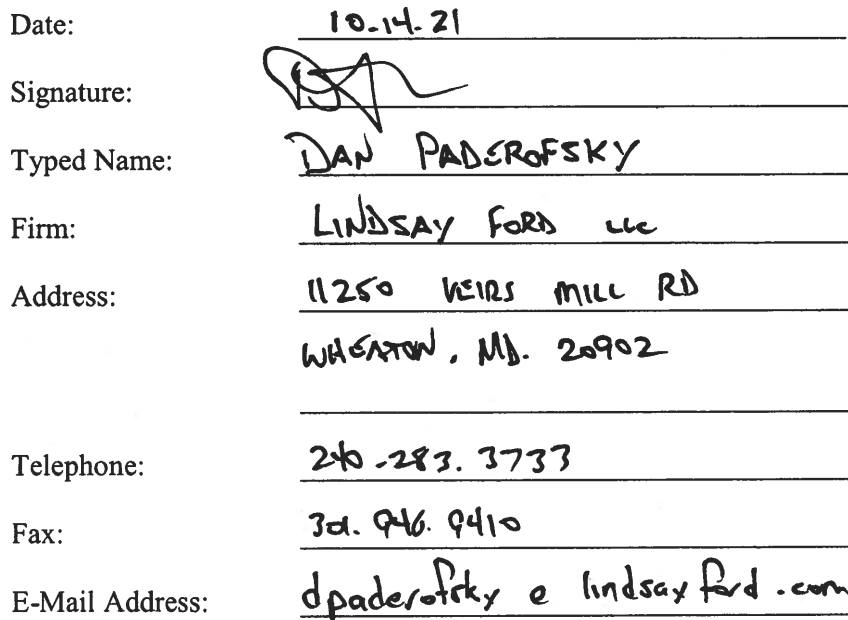 Date: 10-14-21
Signature:
Typed Name: DAN PADEROFSKY
Firm: LINDSAY FORD LLC
Address: 11250 VEIRS MILL RD
WHEATON, MD. 20902
Telephone: 240-283.3733
Fax: 301.946.9410
E-Mail Address: dpaderofsky @ lindsayford.com